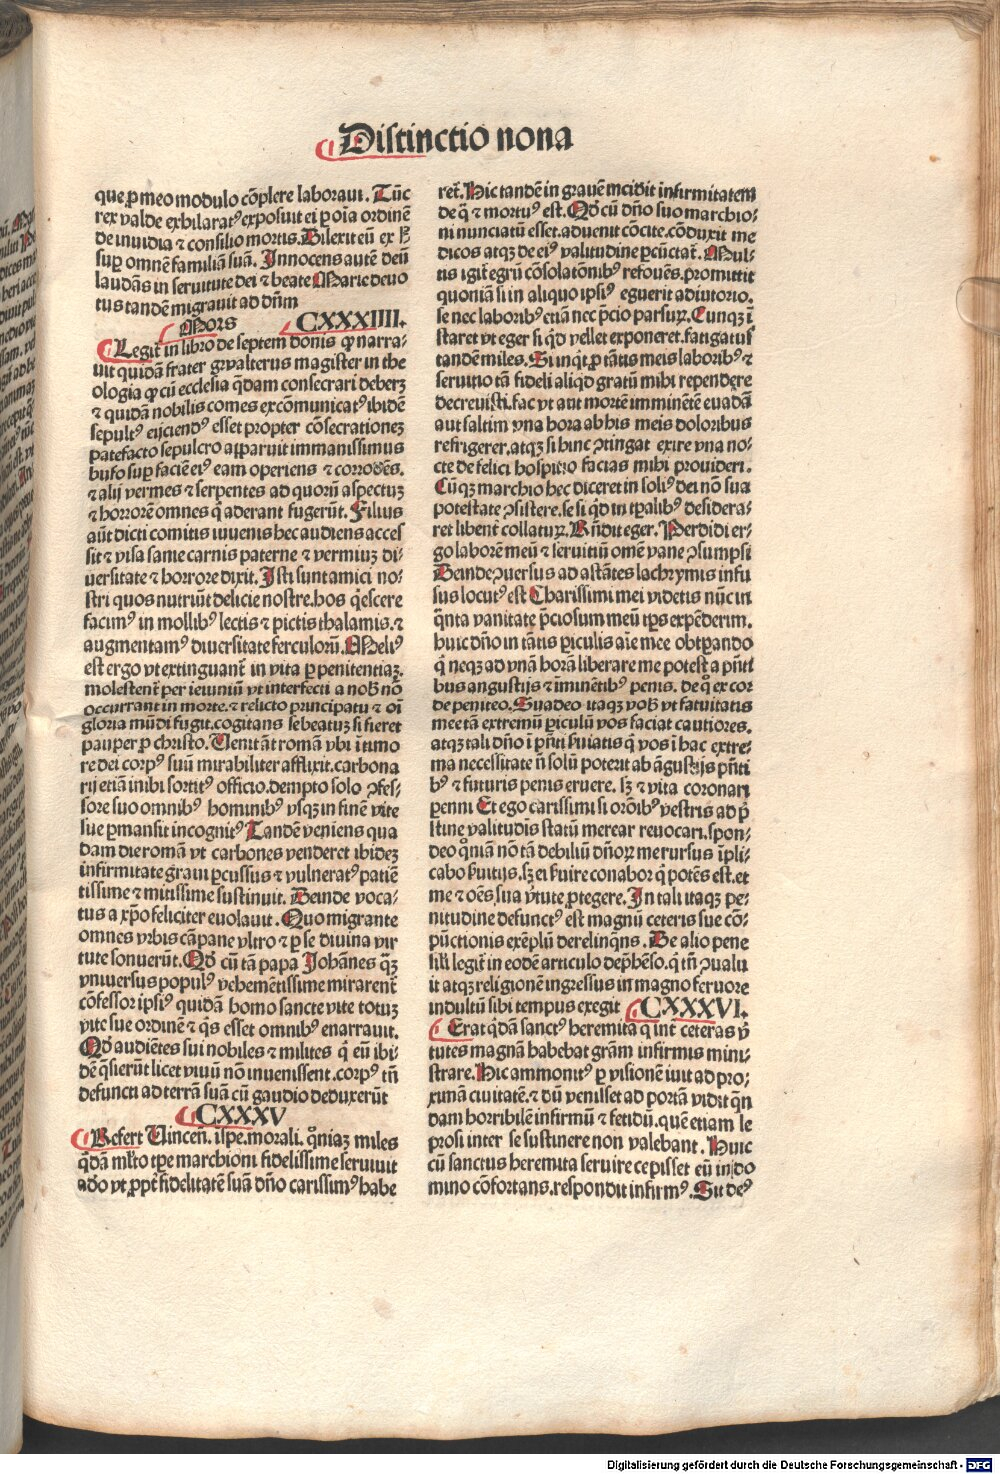 Distinctio nona
que ꝑ meo modulo cõplere laboraui. Tũc
rex valde exhilaratꝰ exposuit ei ꝑ oĩa ordinẽ
de inuidia ⁊ consilio mortis. Dilexit eũ ex
suꝑ omnẽ familiã suã. Innocens autẽ deũ
laudãs in seruitute dei ⁊ beate Marie deuo
tus tandẽ migrauit ad dñm
Mors CXXXIIII.
Legit̃ in libro de septem donis ꝙ narra-
uit quidã frater gwalterus magister in the
ologia ꝙ cũ ecclesia q̃dam consecrari deberꝫ
⁊ quidã nobilis comes excõmunicatꝰ ibidẽ
sepultꝰ eijciendꝰ esset propter cõsecrationeꝫ
patefacto sepulcro apparuit immanissimus
bufo suꝑ faciẽ eiꝰ eam operiens ⁊ corrodẽs.
⁊ alij vermes ⁊ serpentes ad quorũ aspectuꝫ
⁊ horrorẽ omnes q̃ aderant fugerũt. Filius
aũt dicti comitis iuuenis hec audiens acces
sit ⁊ visa sanie carnis paterne ⁊ vermiuꝫ di-
uersitate ⁊ horrore dixit. Isti sunt amici no-
stri quos nutriũt delicie nostre. hos q̃escere
facimꝰ in mollibꝰ lectis ⁊ pictis thalamis. ⁊
augmentamꝰ diuersitate ferculorũ. Meliꝰ
est ergo vt extinguant̃ in vita ꝑ penitentiaꝫ.
molestent̃ per ieiuniũ vt interfecti a nob̃ nõ
occurrant in morte. ⁊ relicto principatu ⁊ oĩ
gloria mũdi fugit. cogitans se beatuꝫ si fieret
pauper ꝓ christo. Uenit ãt romã vbi ĩ timo
re dei corpꝰ suũ mirabiliter afflixit. carbona
rij etiã inibi sortitꝰ officio. dempto solo ꝯfes-
sore suo omnibꝰ hominibꝰ vsqꝫ in finẽ vite
sue ꝑmansit incognitꝰ Tandẽ veniens qua
dam die romã vt carbones venderet ibideꝫ
infirmitate graui ꝑcussus ⁊ vulneratꝰ patiẽ
tissime ⁊ mitissime sustinuit. Deinde voca-
tus a xp̃o feliciter euolauit. Quo migrante
omnes vrbis cãpane vltro ⁊ ꝑ se diuina vir
tute sonuerũt. Qd̃ cũ tã papa Johãnes q̃ꝫ
vniuersus populꝰ vehementissime mirarent̃
cõfessor ipsiꝰ quidã homo sancte vite totuꝫ
vite sue ordinẽ ⁊ q̃s esset omnibꝰ enarrauit.
Qd̃ audiẽtes sui nobiles ⁊ milites q̃ eũ ibi-
dẽ q̃sierũt licet viuũ nõ inuenissent. corpꝰ tñ
defuncti ad terrã suã cũ gaudio deduxerũt
CXXXV
Refert Uinceñ. ĩ spe. morali. q̃niaꝫ miles
q̃dã ml̃to tp̃e marchioni fidelissime seruiuit
adeo vt ꝓpt̃ fidelitatẽ suã dño carissimꝰ habe
ret̃. Hic tandẽ in grauẽ incidit infirmitatem
de q̃ ⁊ mortuꝰ est. Qd̃ cũ dño suo marchio-
ni nunciatũ esset. aduenit cõcite. cõduxit me
dicos atqꝫ de eiꝰ valitudine ꝑcũctat̃. Mul-
tis igit̃ egrũ cõsolatõnibꝰ refouẽs. promittit
quoniã si in aliquo ipsiꝰ eguerit adiutorio.
se nec laboribꝰ etiã nec p̃cio parsuꝝ. Cunqꝫ ĩ
staret vt eger si q̃d vellet exponeret. fatigatus
tandẽ miles. Si inq̃t ꝑ tãtis meis laboribꝰ ⁊
seruitio tã fideli aliq̃d gratũ mihi rependere
decreuisti. fac vt aut mortẽ imminẽtẽ euadã
aut saltim vna hora ab his meis doloribus
refrigerer. atqꝫ si hinc ꝯtingat exire vna no-
cte de felici hospitio facias mihi prouideri.
Cũqꝫ marchio hec diceret in soliꝰ dei nõ sua
potestate ꝯsistere. se si q̃d in tp̃alibꝰ desidera-
ret libent̃ collatuꝝ. Rñdit eger. Perdidi er-
go laborẽ meũ ⁊ seruitiũ omẽ vane ꝯsumpsi
Deinde ꝯuersus ad astãtes lachrymis infu
sus locutꝰ est Charissimi mei videtis nũc in
q̃nta vanitate p̃ciosum meũ tp̃s expẽderim.
huic dño in tãtis ꝑiculis aĩe mee obtꝑando
q̃ neqꝫ ad vnã horã liberare me potest a p̃nti
bus angustijs ⁊ ĩminẽtibꝰ penis. de q̃ ex cor
de peniteo. Suadeo itaqꝫ vob̃ vt fatuitatis
mee tã extremũ ꝑiculũ vos faciat cautiores.
atqꝫ tali dño ĩ p̃nti ẜuiatis q̃ vos ĩ hac extre-
ma necessitate ñ solũ poterit ab ãgustijs p̃nti
bꝰ ⁊ futuris penis eruere. sꝫ ⁊ vita coronari
ꝑenni Et ego carissimi si orõibꝰ vestris ad p̃
stine valitudis statũ merear reuocari. spon-
deo q̃niã nõ tã debiliũ dñoꝝ me rursus ĩpli-
cabo ẜuitijs. sꝫ ei ẜuire conabor q̃ potẽs est. et
me ⁊ oẽs sua v̾tute ꝓtegere. In tali itaqꝫ pe-
nitudine defunctꝰ est magnũ ceteris sue cõ-
pũctionis exẽplũ derelinq̃ns. De alio pene
sil̃i legit̃ in eodẽ articulo dep̃hẽso. q̃ tñ ꝯualu
it atqꝫ religionẽ ingressus in magno feruore
indultũ sibi tempus exegit CXXXVI.
Erat q̃dã sanctꝰ heremita q̃ int̃ ceteras v̾
tutes magnã habebat gr̃am infirmis mini-
strare. Hic ammonitꝰ ꝑ visionẽ iuit ad pro-
ximã ciuitatẽ. ⁊ dũ venisset ad portã vidit q̃n
dam horribilẽ infirmũ ⁊ fetidũ. quẽ etiam le
prosi inter se sustinere non valebant. Huic
cũ sanctus heremita seruire cepisset eũ in do
mino cõfortans. respondit infirmꝰ. Sit deꝰ
Digitalisierung gefördert durch die Deutsche Forschungsgemeinschaft - DFG